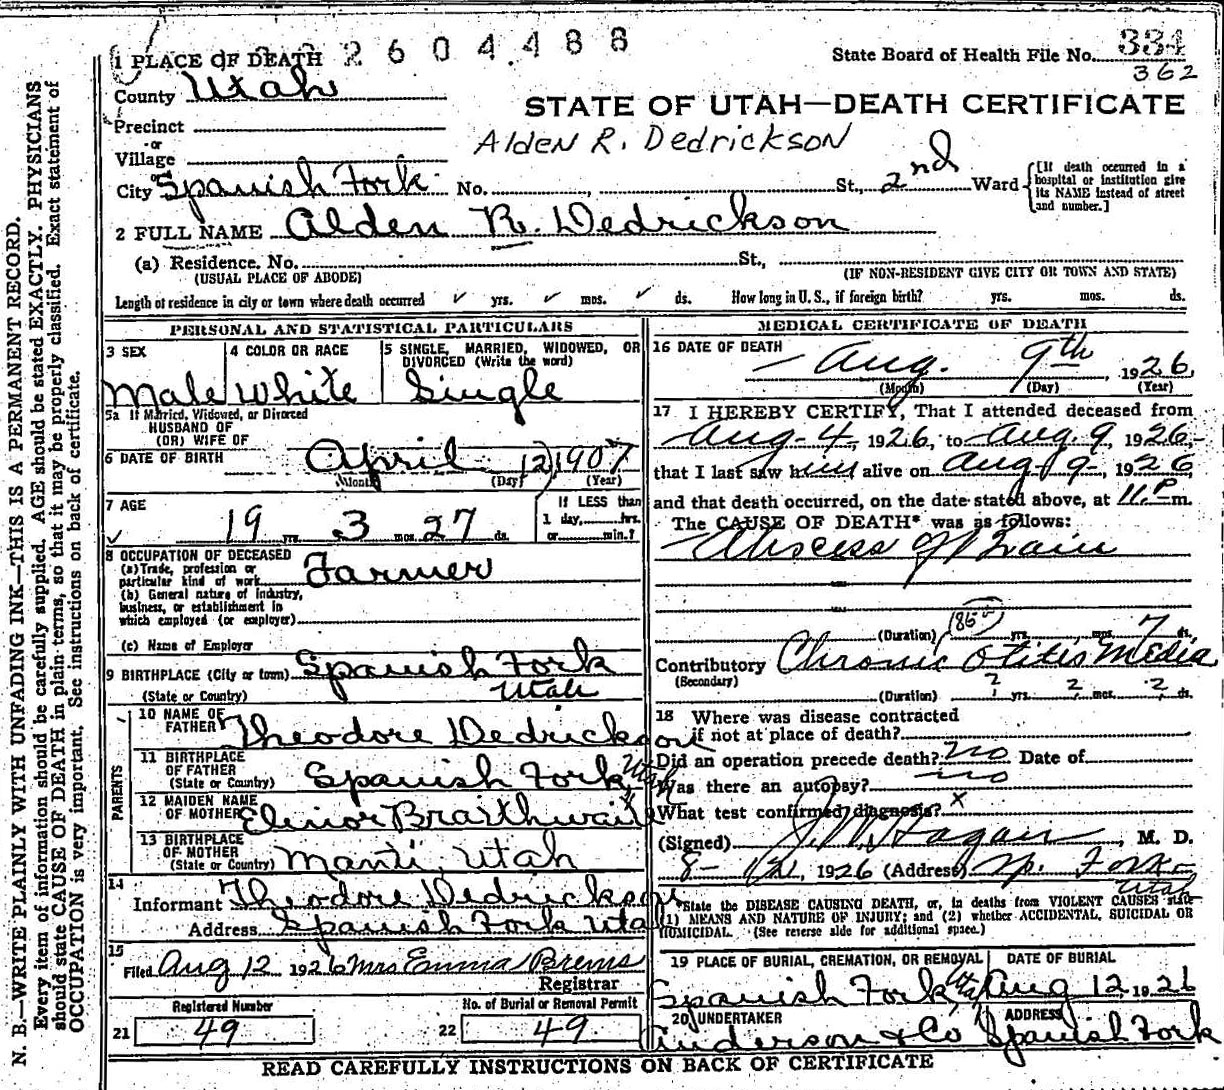 2 2 6 0 4 4 8 8
State Board of Health File No. 334
362
1 PLACE OF DEATH
County Utah
STATE OF UTAH—DEATH CERTIFICATE
Precinct
Alden R. Dedrickson
or
Village
or
City Spanish Fork No. , St., 2nd Ward
[If death occurred in a hospital or institution give its NAME instead of street and number.]
2 FULL NAME Alden R. Dedrickson
(a) Residence. No. St.,
(USUAL PLACE OF ABODE) (IF NON-RESIDENT GIVE CITY OR TOWN AND STATE)
Length of residence in city or town where death occurred ✓ yrs. ✓ mos. ✓ ds. How long in U. S., if foreign birth? yrs. mos. ds.
PERSONAL AND STATISTICAL PARTICULARS
3 SEX
Male
4 COLOR OR RACE
White
5 SINGLE, MARRIED, WIDOWED, OR
DIVORCED (Write the word)
Single
5a If Married, Widowed, or Divorced
HUSBAND OF
(OR) WIFE OF
6 DATE OF BIRTH April 12, 1907
(Month) (Day) (Year)
7 AGE
19 yrs. 3 mos. 27 ds.
If LESS than
1 day, hrs.
or min.?
8 OCCUPATION OF DECEASED
(a) Trade, profession or
particular kind of work Farmer
(b) General nature of industry,
business, or establishment in
which employed (or employer)
(c) Name of Employer
9 BIRTHPLACE (City or town) Spanish Fork
(State or Country) Utah
PARENTS
10 NAME OF
FATHER Theodore Dedrickson
11 BIRTHPLACE
OF FATHER
(State or Country) Spanish Fork, Utah
12 MAIDEN NAME
OF MOTHER Elinor Braithwaite
13 BIRTHPLACE
OF MOTHER
(State or Country) Manti, Utah
14
Informant Theodore Dedrickson
Address Spanish Fork Utah
15
Filed Aug 12 1926 Mrs Emma Brems
Registrar
Registered Number
21 49
No. of Burial or Removal Permit
22 49
MEDICAL CERTIFICATE OF DEATH
16 DATE OF DEATH
Aug. 9th, 1926
(Month) (Day) (Year)
17 I HEREBY CERTIFY, That I attended deceased from
Aug-4, 1926, to Aug. 9, 1926
that I last saw him alive on Aug 9, 1926
and that death occurred, on the date stated above, at 11 P m.
The CAUSE OF DEATH* was as follows:
Abscess of Brain
(Duration) yrs. mos. 7 ds.
Contributory Chronic Otitis Media
(Secondary)
(Duration) ? yrs. ? mos. ? ds.
18 Where was disease contracted
if not at place of death?
Did an operation precede death? no Date of
Was there an autopsy? no
What test confirmed diagnosis? x
(Signed) Hagan, M. D.
8- 1926 (Address) Sp. Fork-
Utah
*State the DISEASE CAUSING DEATH, or, in deaths from VIOLENT CAUSES state
(1) MEANS AND NATURE OF INJURY; and (2) whether ACCIDENTAL, SUICIDAL OR
HOMICIDAL. (See reverse side for additional space.)
19 PLACE OF BURIAL, CREMATION, OR REMOVAL
Spanish Fork, Utah
DATE OF BURIAL
Aug 12 1926
20 UNDERTAKER
Anderson & Co
ADDRESS
Spanish Fork
READ CAREFULLY INSTRUCTIONS ON BACK OF CERTIFICATE
N. B.—WRITE PLAINLY WITH UNFADING INK—THIS IS A PERMANENT RECORD.
Every item of information should be carefully supplied. AGE should be stated EXACTLY. PHYSICIANS
should state CAUSE OF DEATH in plain terms, so that it may be properly classified. Exact statement of
OCCUPATION is very important. See instructions on back of certificate.